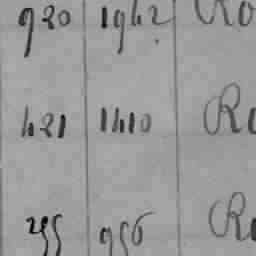 920 1942 Ro
421 1410 Ro
255 956 Ro